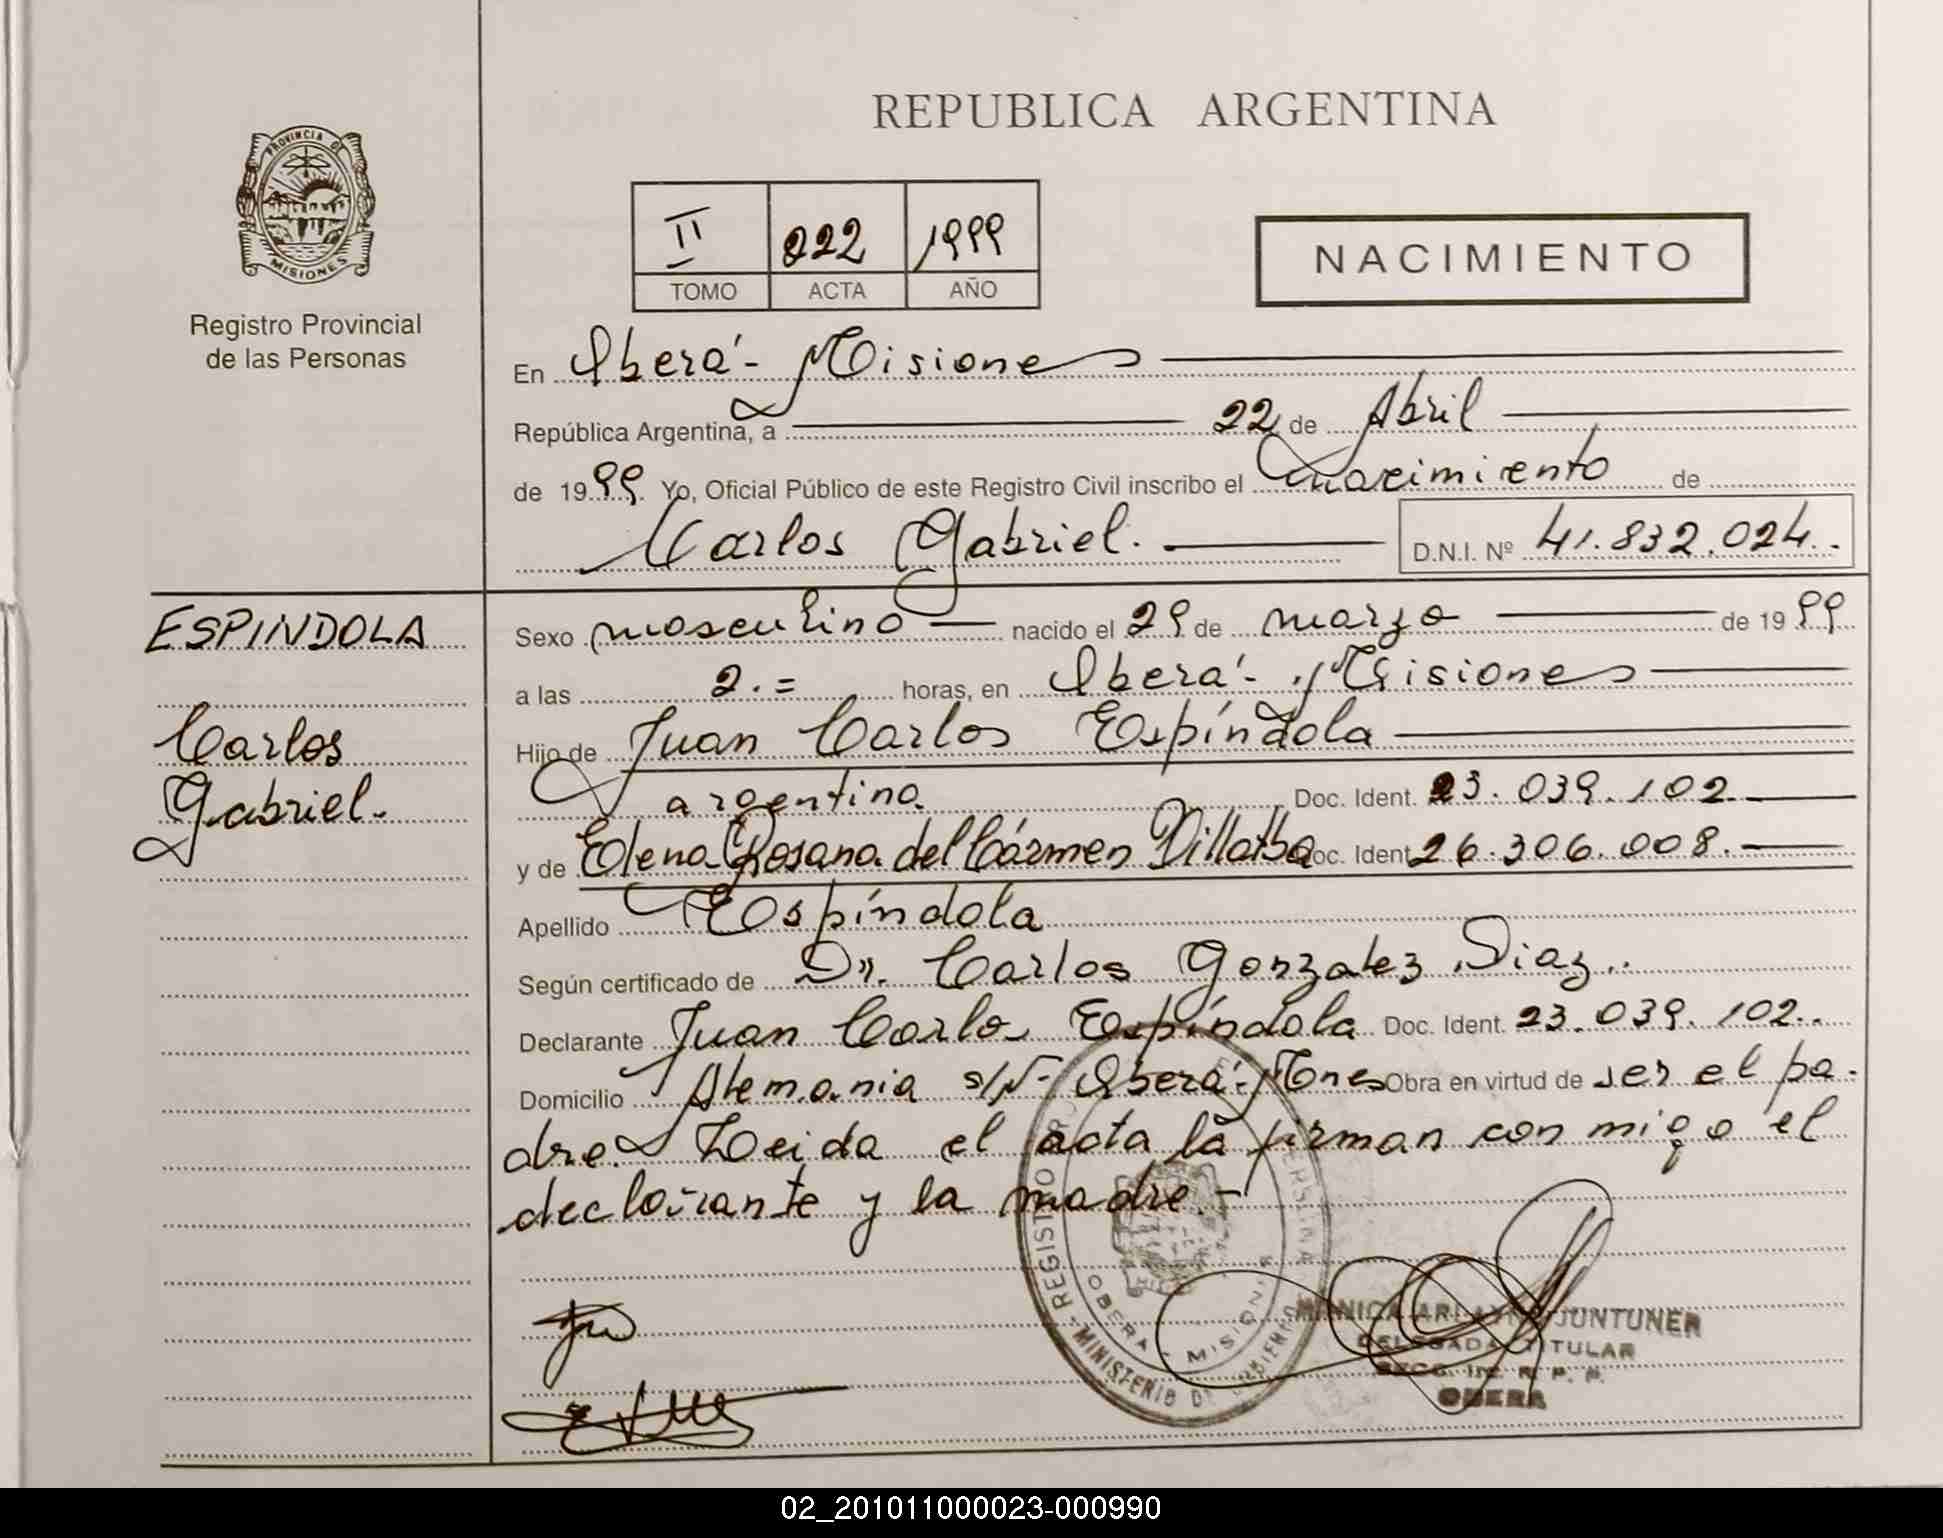 PROVINCIA DE
MISIONES
Registro Provincial
de las Personas
REPUBLICA ARGENTINA
II 222 1999
TOMO ACTA AÑO
NACIMIENTO
En Oberá - Misiones
República Argentina, a 22 de Abril
de 1999 Yo, Oficial Público de este Registro Civil inscribo el nacimiento de
Carlos Gabriel. D.N.I. Nº 41.832.024.
ESPINDOLA
Carlos
Gabriel.
Sexo masculino nacido el 29 de marzo de 1999
a las 2.= horas, en Oberá - Misiones
Hijo de Juan Carlos Espíndola
argentino Doc. Ident. 23.039.102
y de Elena Rosana del Cármen Villalba Doc. Ident. 26.306.008.
Apellido Espíndola
Según certificado de Dr. Carlos Gonzalez Diaz.
Declarante Juan Carlos Espíndola Doc. Ident. 23.039.102.
Domicilio Alemania s/N - Oberá - Mnes Obra en virtud de ser el pa-
dre. Leida el acta la firman con migo el
declarante y la madre.-
REGISTRO
OBERA - MISIONES
MINISTERIO DE GOBIERNO
JUNTUNER
DELEGADA TITULAR
R. P. P.
OBERA
02_201011000023-000990